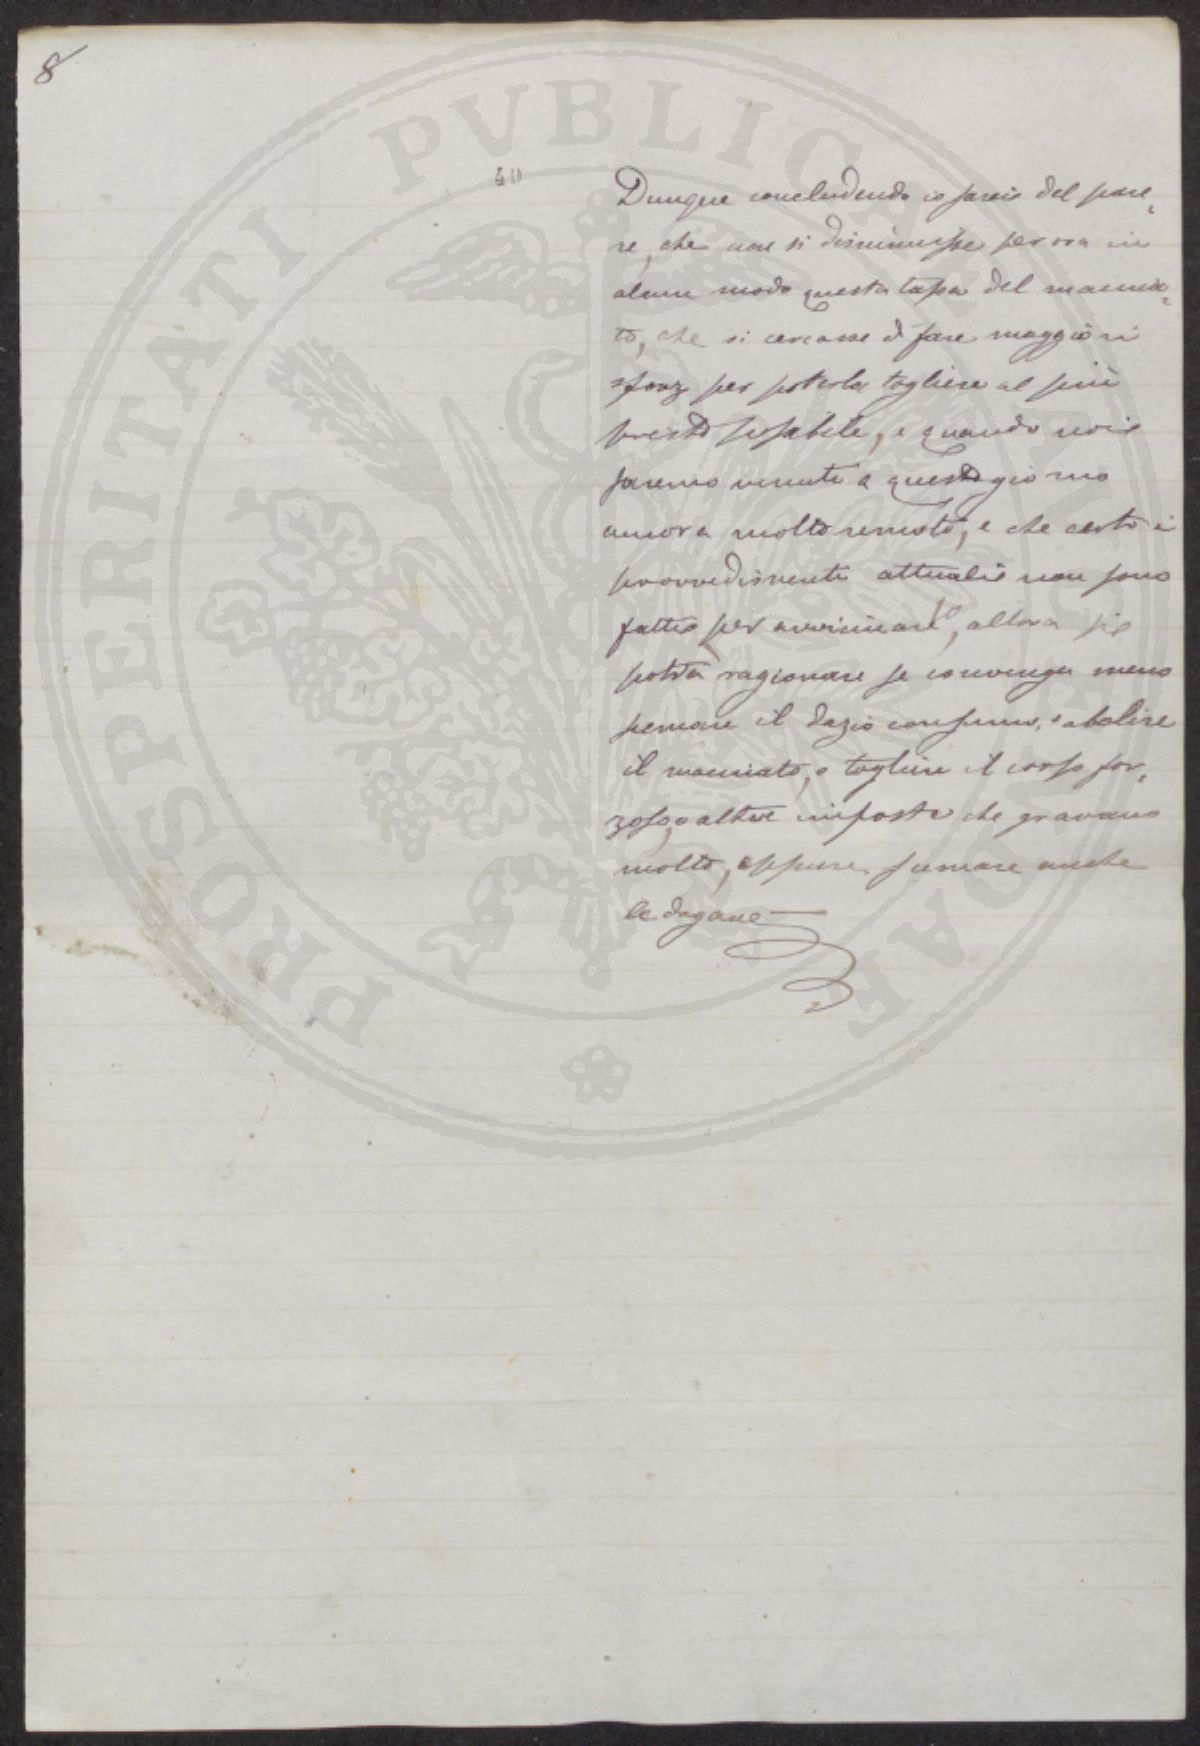 8
40
PROSPERITATI PVBLICAE
Dunque concludendo io sarei del pare„
re, che non si diminuisse per ora in
alcun modo questa tassa del macina„
to, che si cercasse di fare maggiori
sforzi per poterla togliere al più
presto possibile, e quando noi
saremo venuti a questo giorno
ancora molto remoto, e che certo i
provvedimenti attuali non sono
fatti per avvicinarlo, allora si
potrà ragionare se convenga meno
scemare il dazio consumo, o abolire
il macinato, o togliere il corso for„
zoso, o altre imposte che gravano
molto, oppure scemare anche
le dogane